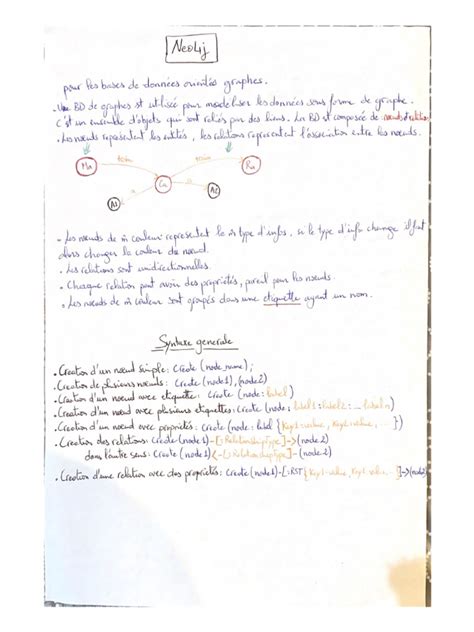 Neo4j
pour les bases de données orientés graphes.
. Une BD de graphes st utilisée pour modeliser les données sous forme de graphe.
C'est un ensemble d'objets qui sont reliés par des liens. La BD est composée de noeuds & relations
. Les noeuds representent les entités, les relations representent l'association entre les noeuds.
train train
Ma Ca Ru
a a
A1 A2
. Les noeuds de m̂ couleur representent le m̂ type d'infos, si le type d'info change il faut
alors changer la couleur du noeud.
. Les relations sont unidirectionnelles.
. Chaque relation peut avoir des propriétés, pareil pour les noeuds.
. Les noeuds de m̂ couleur sont groupés dans une etiquette ayant un nom.
Syntaxe generale
. Creation d'un noeud simple: Create (node_name);
. Creation de plusieurs noeuds: Create (node1),(node2)
. Creation d'un noeud avec etiquette: Create (node:label)
. Creation d'un noeud avec plusieurs etiquettes: Create (node:label1:label2:...labeln)
. Creation d'un noeud avec propriétés: Create (node:label {Key1:value, Key2:value, ...})
. Creation des relations: Create (node1)-[:RelationshipType]->(node2)
dans l'autre sens: Create (node1)<-[:RelationshipType]-(node2)
. Creation d'une relation avec des propriétés: Create (node1)-[:RST{Key1:value, Key2:value...}]->(node2)